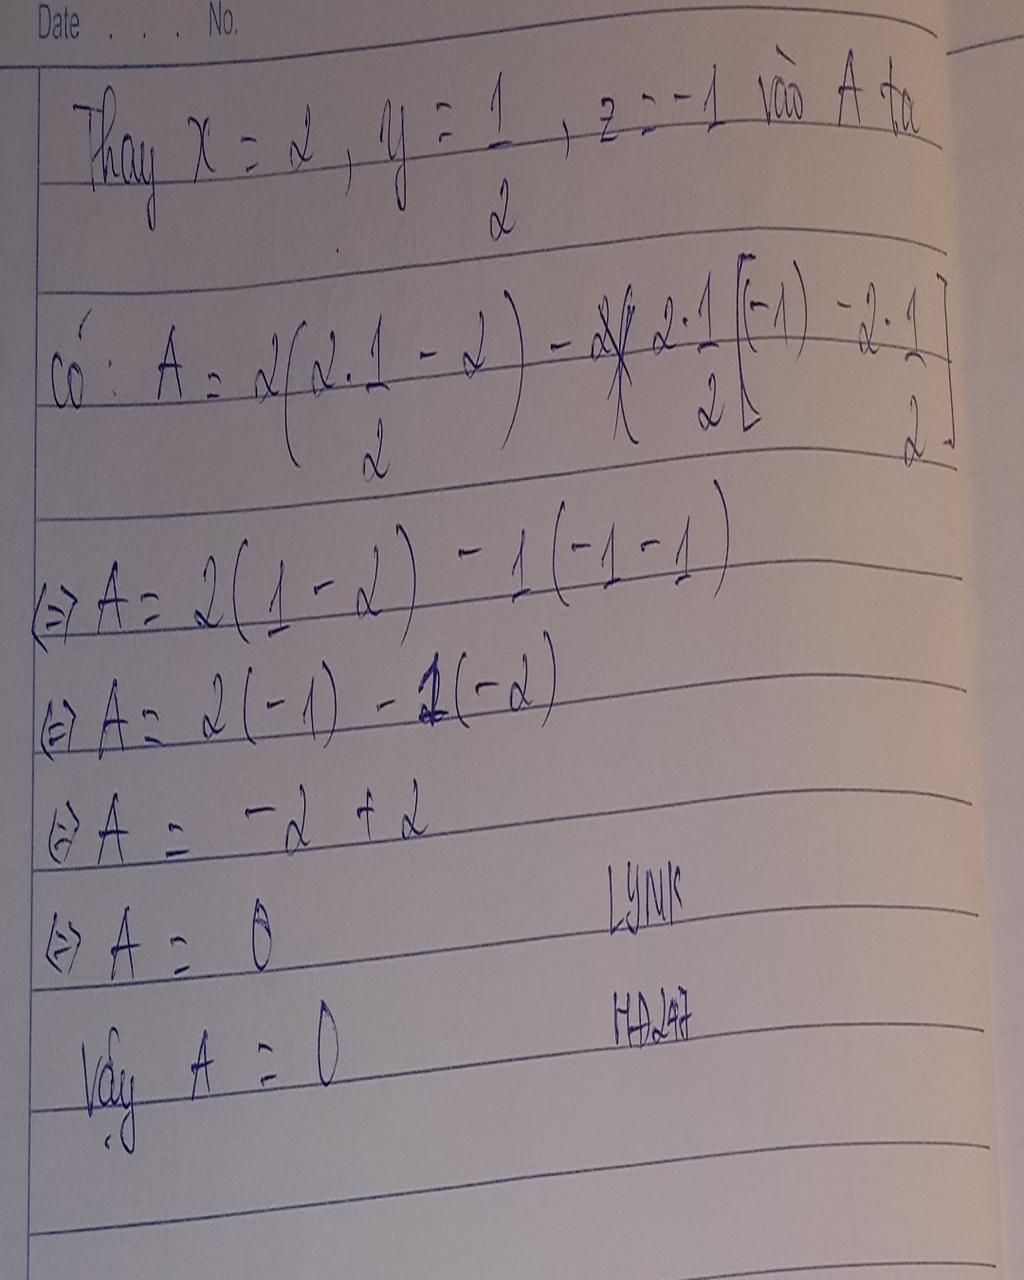 Date . . . No.
Thay x = 2, y = 1/2, z = -1 vào A ta
có: A = 2(2.1/2 - 2) - 2.1/2[(-1) - 2.1/2]
<=> A = 2(1 - 2) - 1(-1 - 1)
<=> A = 2(-1) - 1(-2)
<=> A = -2 + 2
<=> A = 0
LYNK
Vậy A = 0
HĐ247